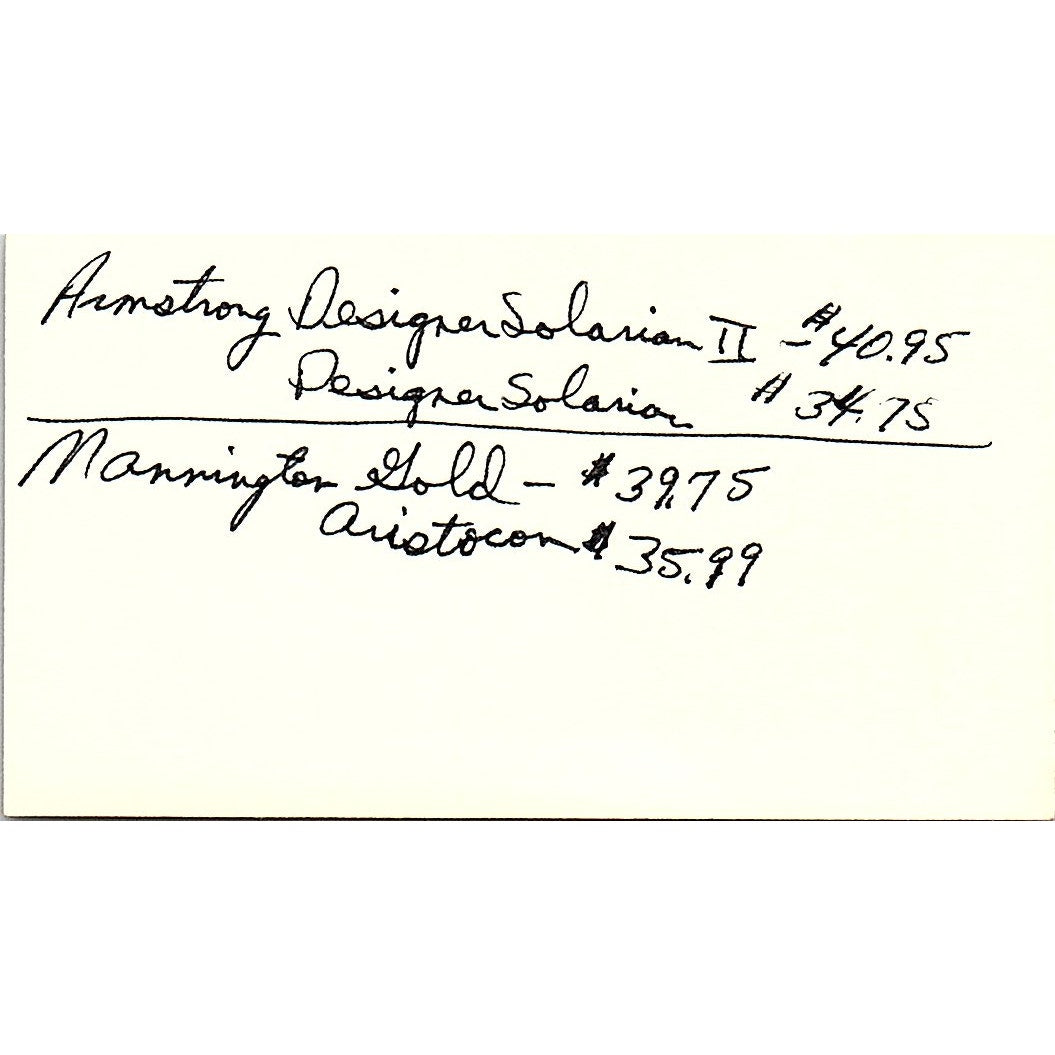 Armstrong Designer Solarian II - $40.95
Designer Solarian $34.75
Mannington Gold - $39.75
Aristocon $35.99